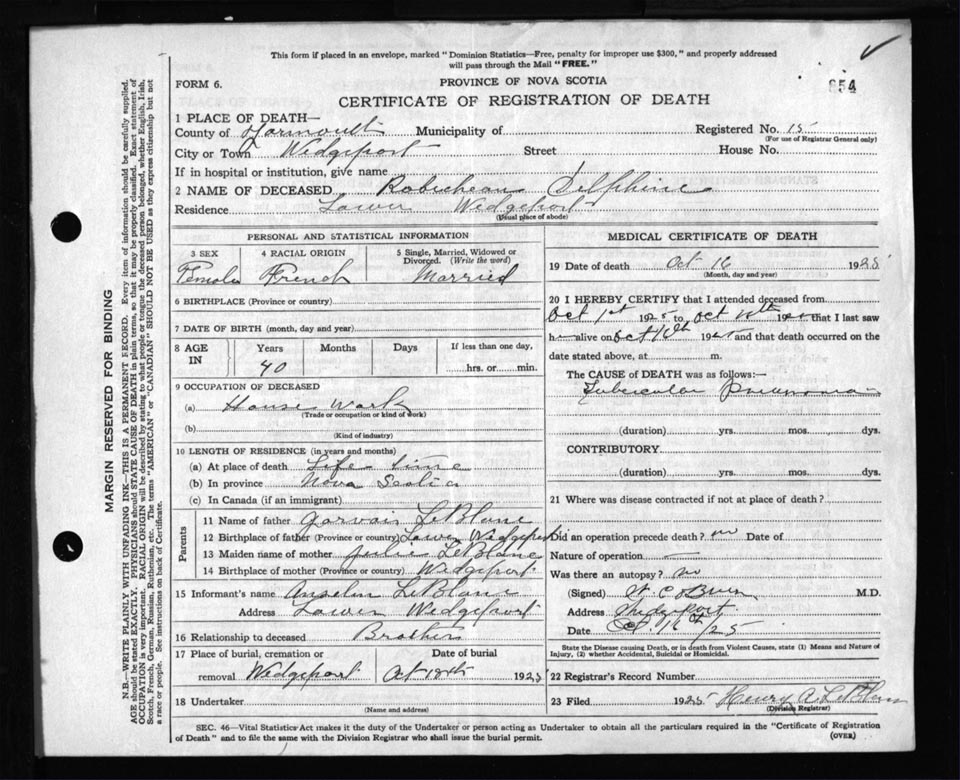 This form if placed in an envelope, marked "Dominion Statistics—Free, penalty for improper use $300," and properly addressed
will pass through the Mail "FREE."
FORM 6.
PROVINCE OF NOVA SCOTIA
854
CERTIFICATE OF REGISTRATION OF DEATH
1 PLACE OF DEATH—
County of Yarmouth Municipality of Registered No. 15
(For use of Registrar General only)
City or Town Wedgeport Street House No.
If in hospital or institution, give name
2 NAME OF DECEASED Robicheau Delphine
Residence Lower Wedgeport
(Usual place of abode)
PERSONAL AND STATISTICAL INFORMATION
3 SEX 4 RACIAL ORIGIN 5 Single, Married, Widowed or
Divorced. (Write the word)
Female French Married
6 BIRTHPLACE (Province or country)
7 DATE OF BIRTH (month, day and year)
8 AGE IN Years Months Days If less than one day,
40 hrs. or min.
9 OCCUPATION OF DECEASED
(a) House Work
(Trade or occupation or kind of work)
(b)
(Kind of industry)
10 LENGTH OF RESIDENCE (in years and months)
(a) At place of death Life time
(b) In province Nova Scotia
(c) In Canada (if an immigrant)
Parents
11 Name of father Gervais LeBlanc
12 Birthplace of father (Province or country) Lower Wedgeport
13 Maiden name of mother Julie LeBlanc
14 Birthplace of mother (Province or country) Wedgeport
15 Informant's name Anselm LeBlanc
Address Lower Wedgeport
16 Relationship to deceased Brother
17 Place of burial, cremation or Date of burial
removal Wedgeport Oct 18th 1925
18 Undertaker
(Name and address)
MEDICAL CERTIFICATE OF DEATH
19 Date of death Oct 16 1925
(Month, day and year)
20 I HEREBY CERTIFY that I attended deceased from
Oct 1st 1925 to Oct 192 that I last saw
h alive on Oct 1925 and that death occurred on the
date stated above, at m.
The CAUSE OF DEATH was as follows:—
Tubercular Pneumonia
(duration) yrs. mos. dys.
CONTRIBUTORY
(duration) yrs. mos. dys.
21 Where was disease contracted if not at place of death?
Did an operation precede death? no Date of
Nature of operation —
Was there an autopsy? no
(Signed) M.D.
Address Wedgeport
Date Oct 16th/25
State the Disease causing Death, or in death from Violent Causes, state (1) Means and Nature of
Injury, (2) whether Accidental, Suicidal or Homicidal.
22 Registrar's Record Number
23 Filed 1925 Henry A LeBlanc
(Division Registrar)
SEC. 46—Vital Statistics Act makes it the duty of the Undertaker or person acting as Undertaker to obtain all the particulars required in the "Certificate of Registration
of Death" and to file the same with the Division Registrar who shall issue the burial permit.
(OVER)
MARGIN RESERVED FOR BINDING
N.B.—WRITE PLAINLY WITH UNFADING INK—THIS IS A PERMANENT RECORD. Every item of information should be carefully supplied.
AGE should be stated EXACTLY. PHYSICIANS should STATE CAUSE OF DEATH in plain terms, so that it may be properly classified. Exact statement of
OCCUPATION is very important. RACIAL ORIGIN will be described by stating to what people or tongue the deceased person belonged, whether English, Irish,
Scotch, French, German, Russian, Ruthenian, etc. The terms "AMERICAN" or "CANADIAN" SHOULD NOT BE USED as they express citizenship but not
a race or people. See instructions on back of Certificate.